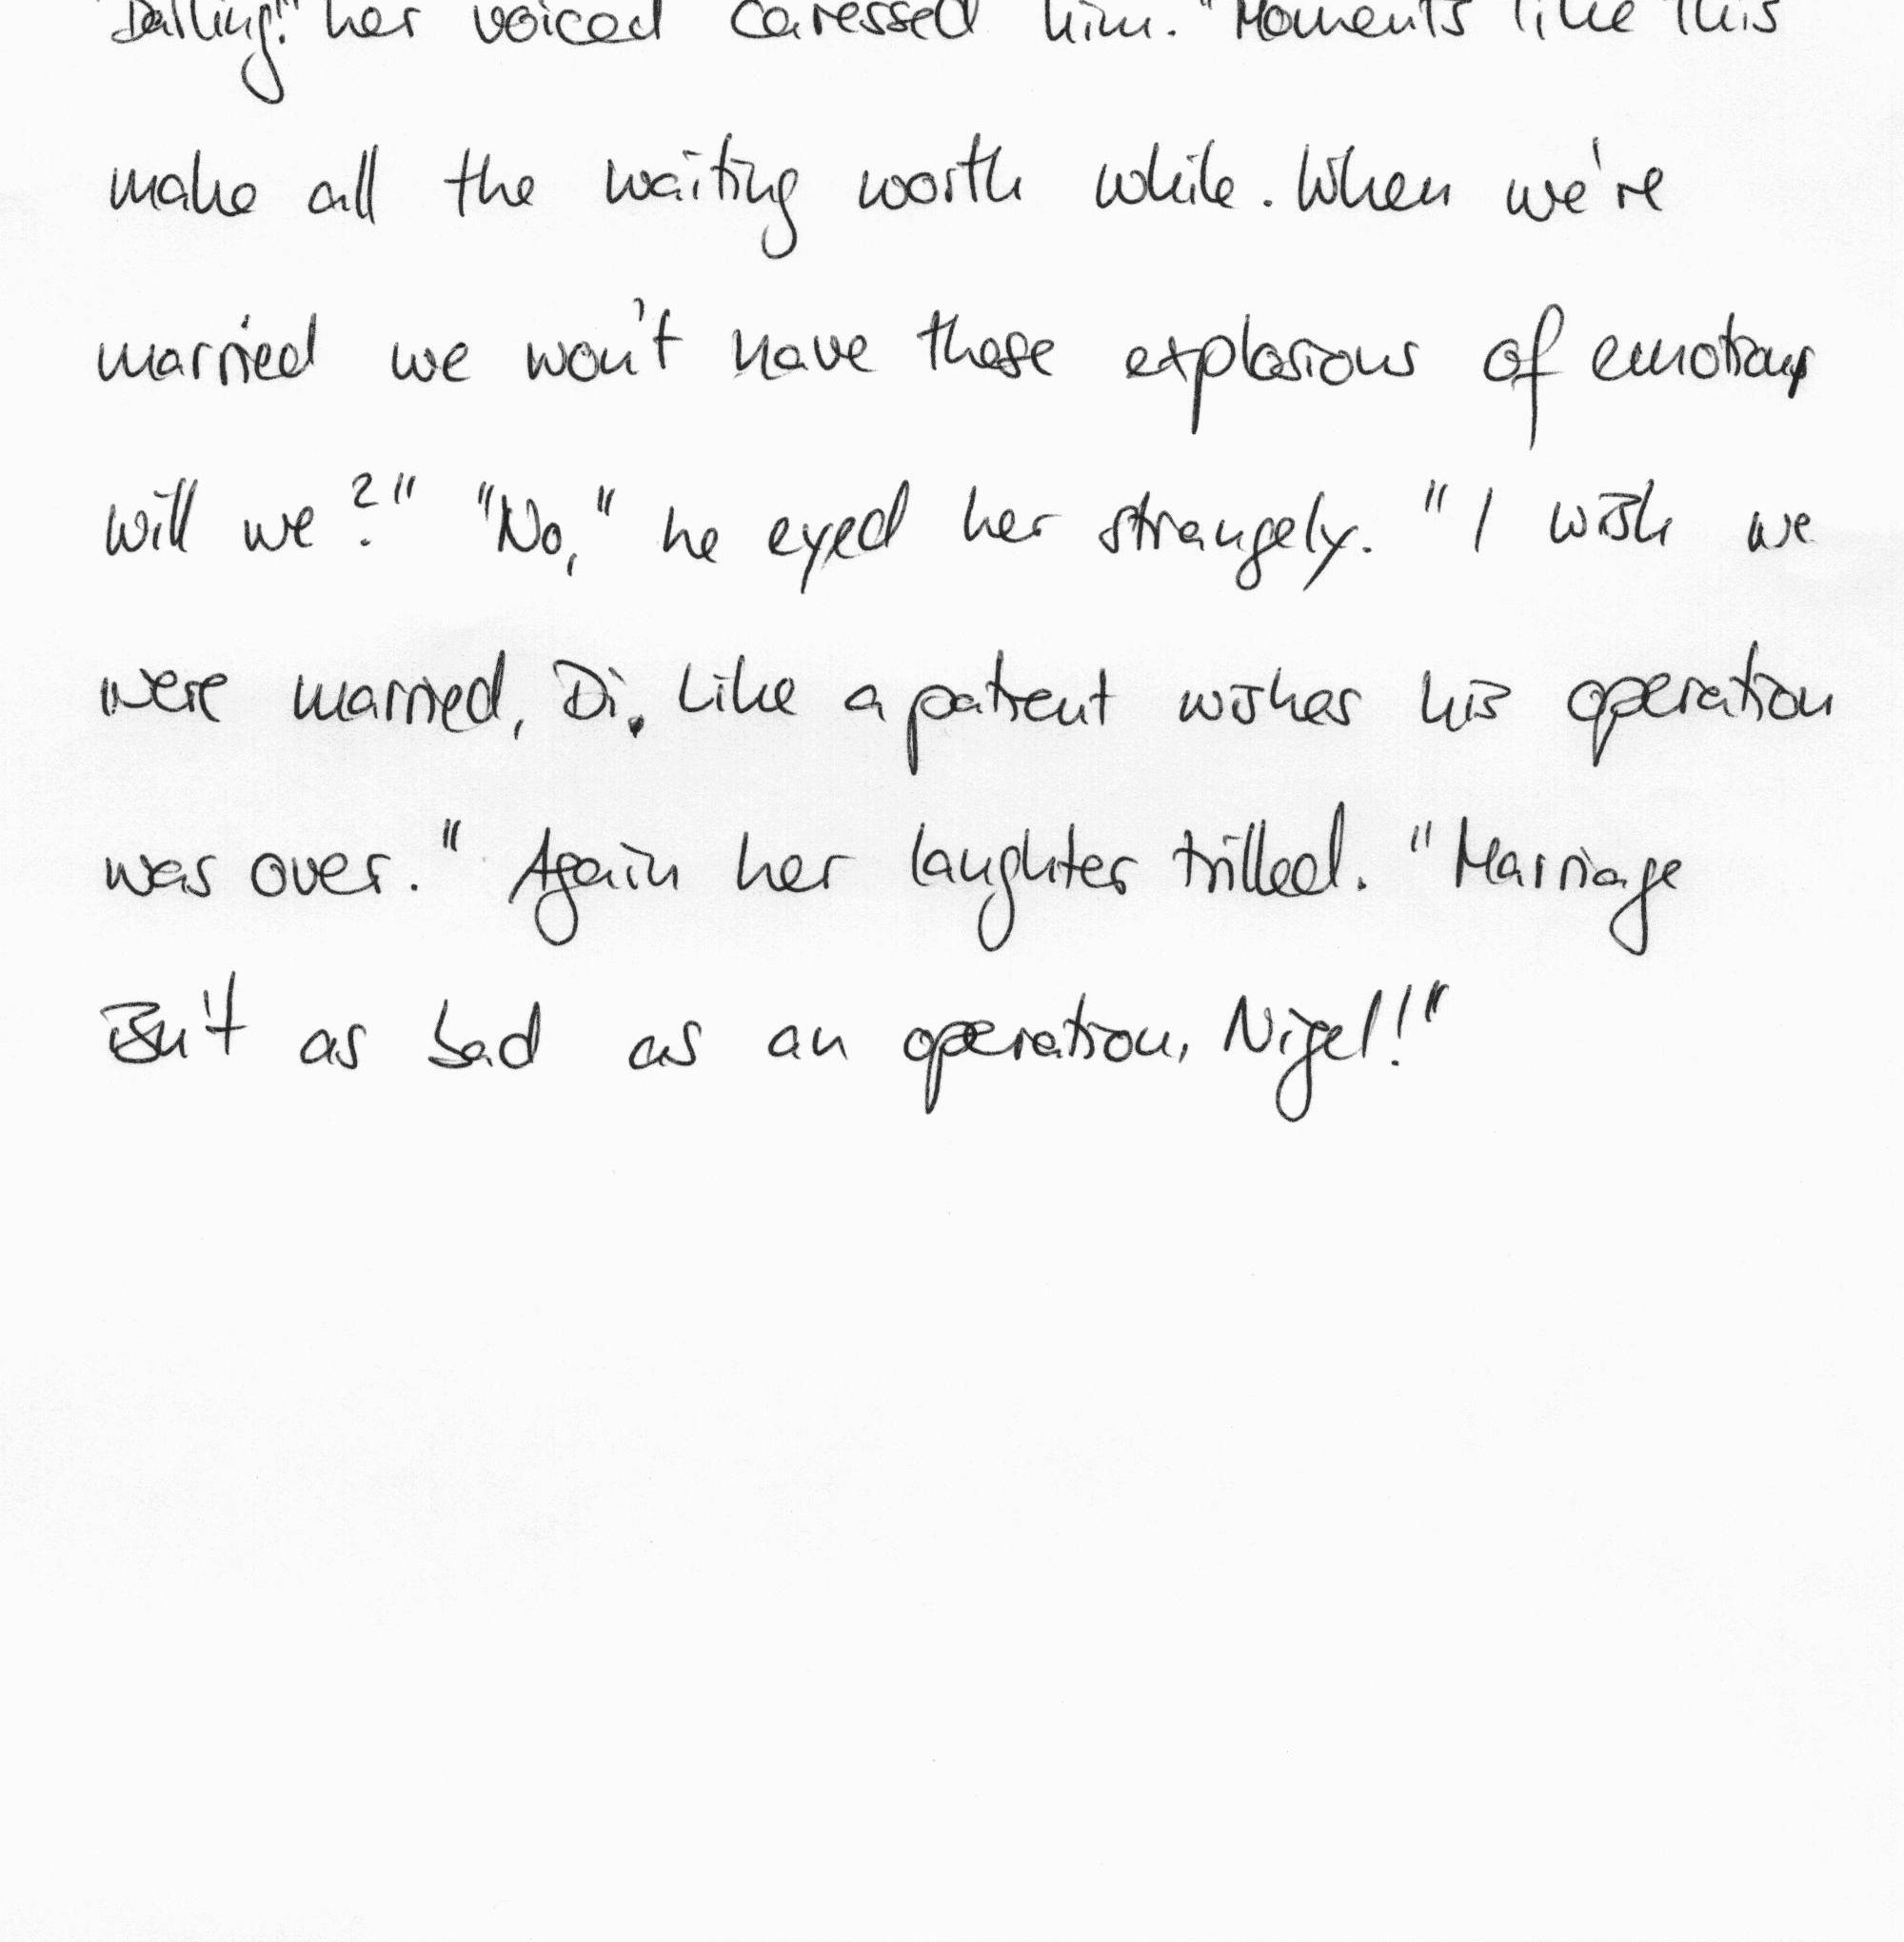 Darling!" her voiced caressed him. "Moments like this
make all the waiting worth while. When we're
married we won't have these explosions of emotions
will we?" "No," he eyed her strangely. "I wish we
were married, Di. Like a patient wishes his operation
was over." Again her laughter trilled. "Marriage
isn't as bad as an operation, Nigel!"